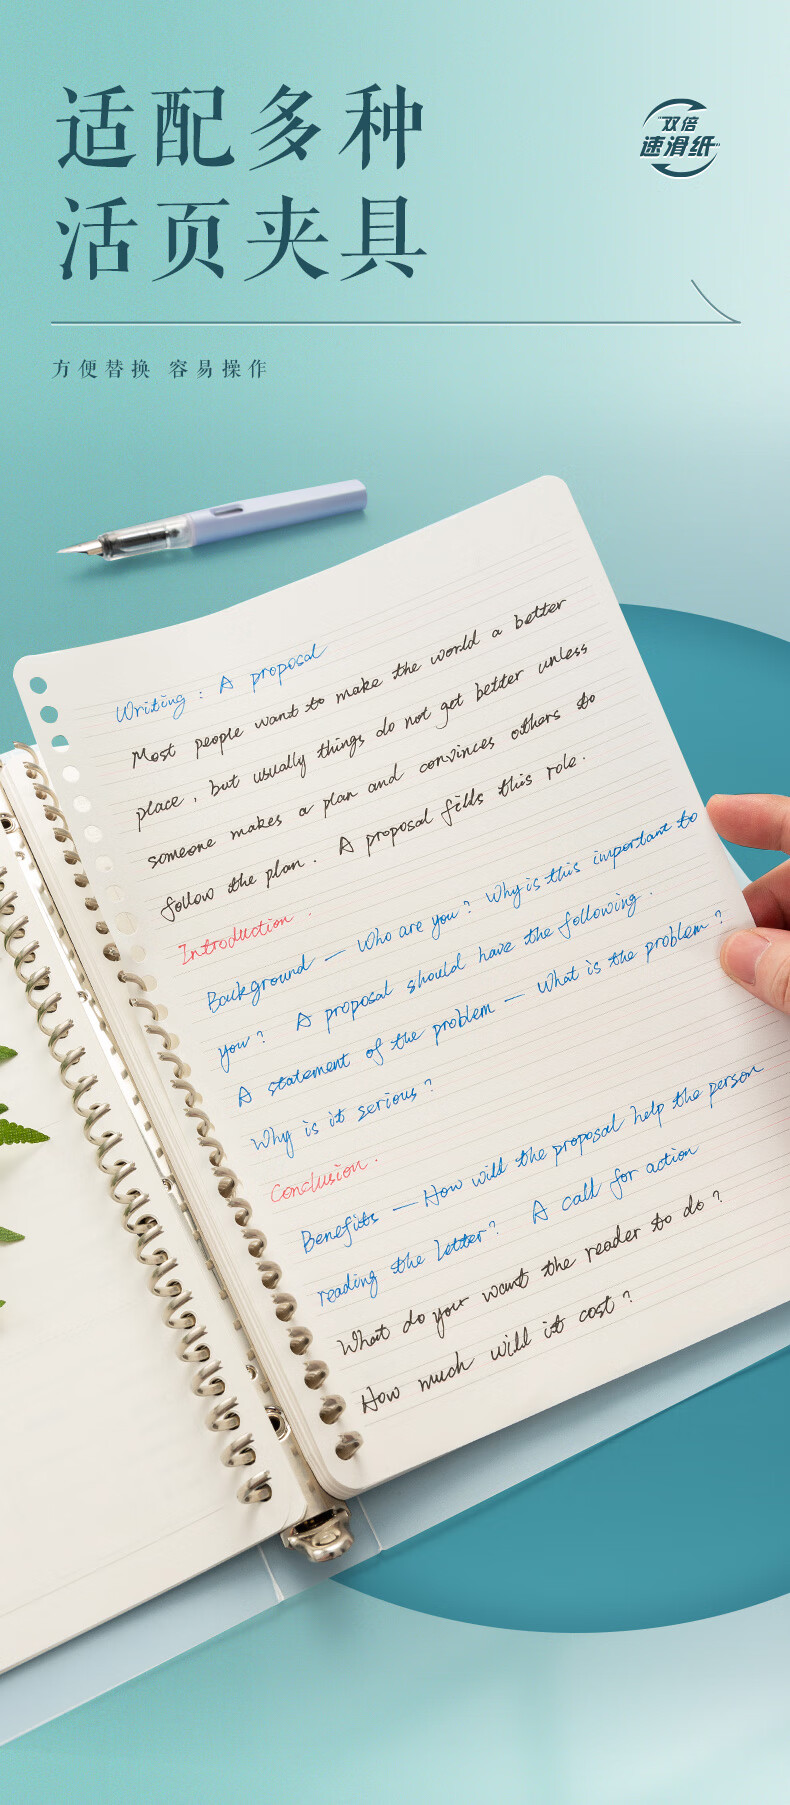 适配多种
活页夹具
双倍
速滑纸
方便替换 容易操作
Writing : A proposal
Most people want to make the world a better
place , but usually things do not get better unless
someone makes a plan and convinces others to
follow the plan . A proposal fills this role .
Introduction .
Background — Who are you ? Why is this important to
you ? A proposal should have the following .
A statement of the problem — What is the problem ?
Why is it serious ?
Conclusion .
Benefits — How will the proposal help the person
reading the letter ? A call for action
What do your want the reader to do ?
How much will it cost ?